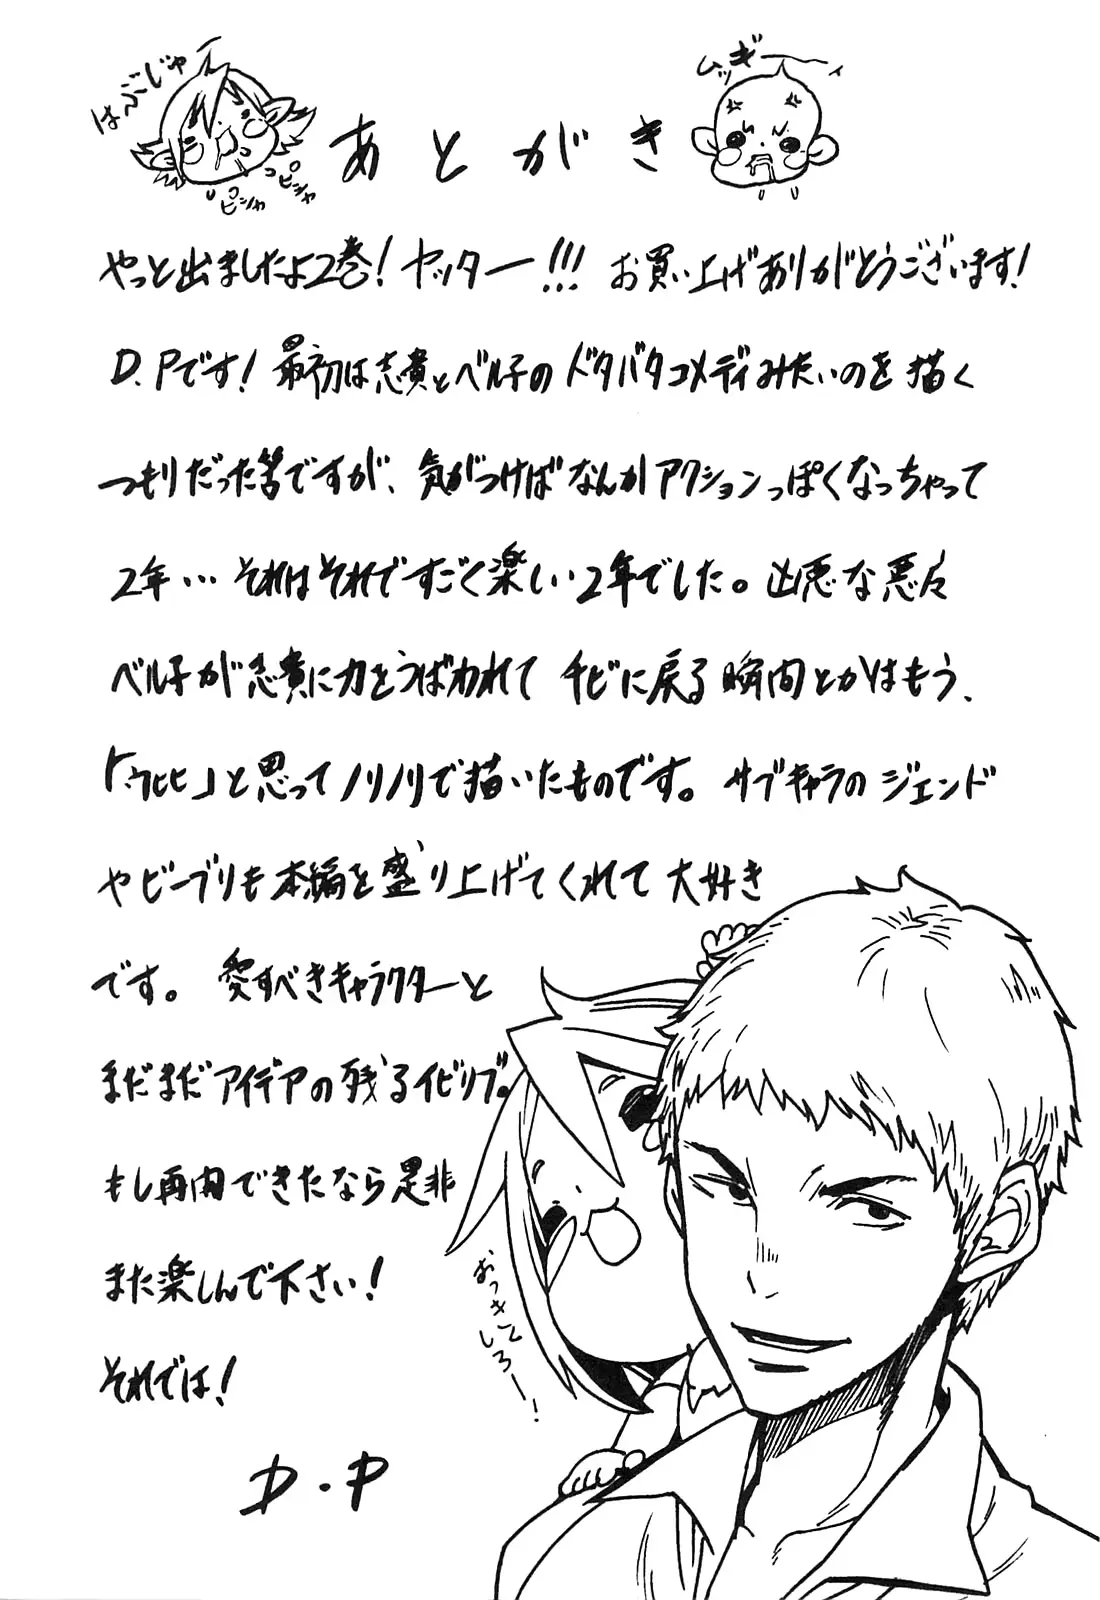 はぶじゃー
あとがき
ムッギーィ
ピシャ
ピシャ
やっと出ましたよ2巻！ヤッター!!! お買い上げありがとうございます！
D.Pです！最初は志貴とベル子のドタバタコメディみたいのを描く
つもりだった筈ですが、気がつけばなんかアクションっぽくなっちゃって
2年…それはそれですごく楽しい2年でした。凶悪な悪々
ベル子が志貴に力をうばわれてチビに戻る瞬間とかはもう、
「ウヒヒ」と思ってノリノリで描いたものです。サブキャラのジェンド
やビーブリも本編を盛り上げてくれて大好き
です。愛すべきキャラクターと
まだまだアイデアの残るイビリブ。
もし再開できたなら是非
また楽しんで下さい！
それでは！
D.P
おっきくしろー！